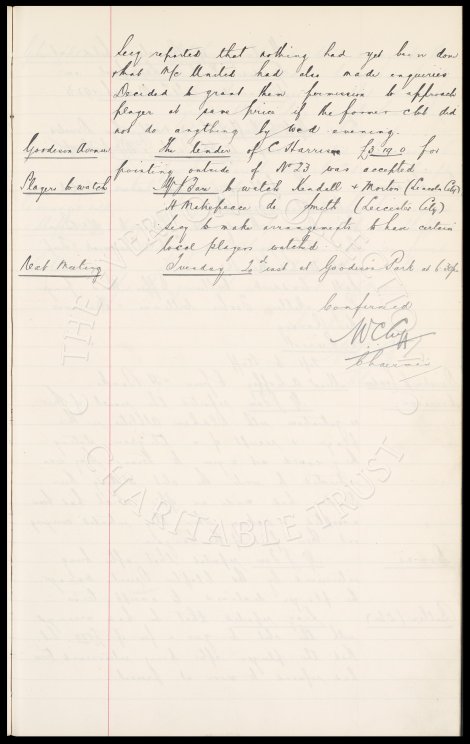 Secy reported that nothing had yet been done
& that M/c United had also made enquiries
Decided to grant them permission to approach
player at same price if the former club did
not do anything by Wed evening.
Goodison Avenue The tender of C Harrison £3.19.0 for
painting outside of No 23 was accepted
Players to watch Mr J Baxr to watch Kendall & Morton (Lincoln City)
H Makepeace do Smith (Leicester City)
Secy to make arrangements to have certain
local players watched.
Next Meeting Tuesday 2nd inst at Goodison Park at 6.30pm
Confirmed
W C Cuff
Chairman
THE EVERTON COLLECTION
CHARITABLE TRUST